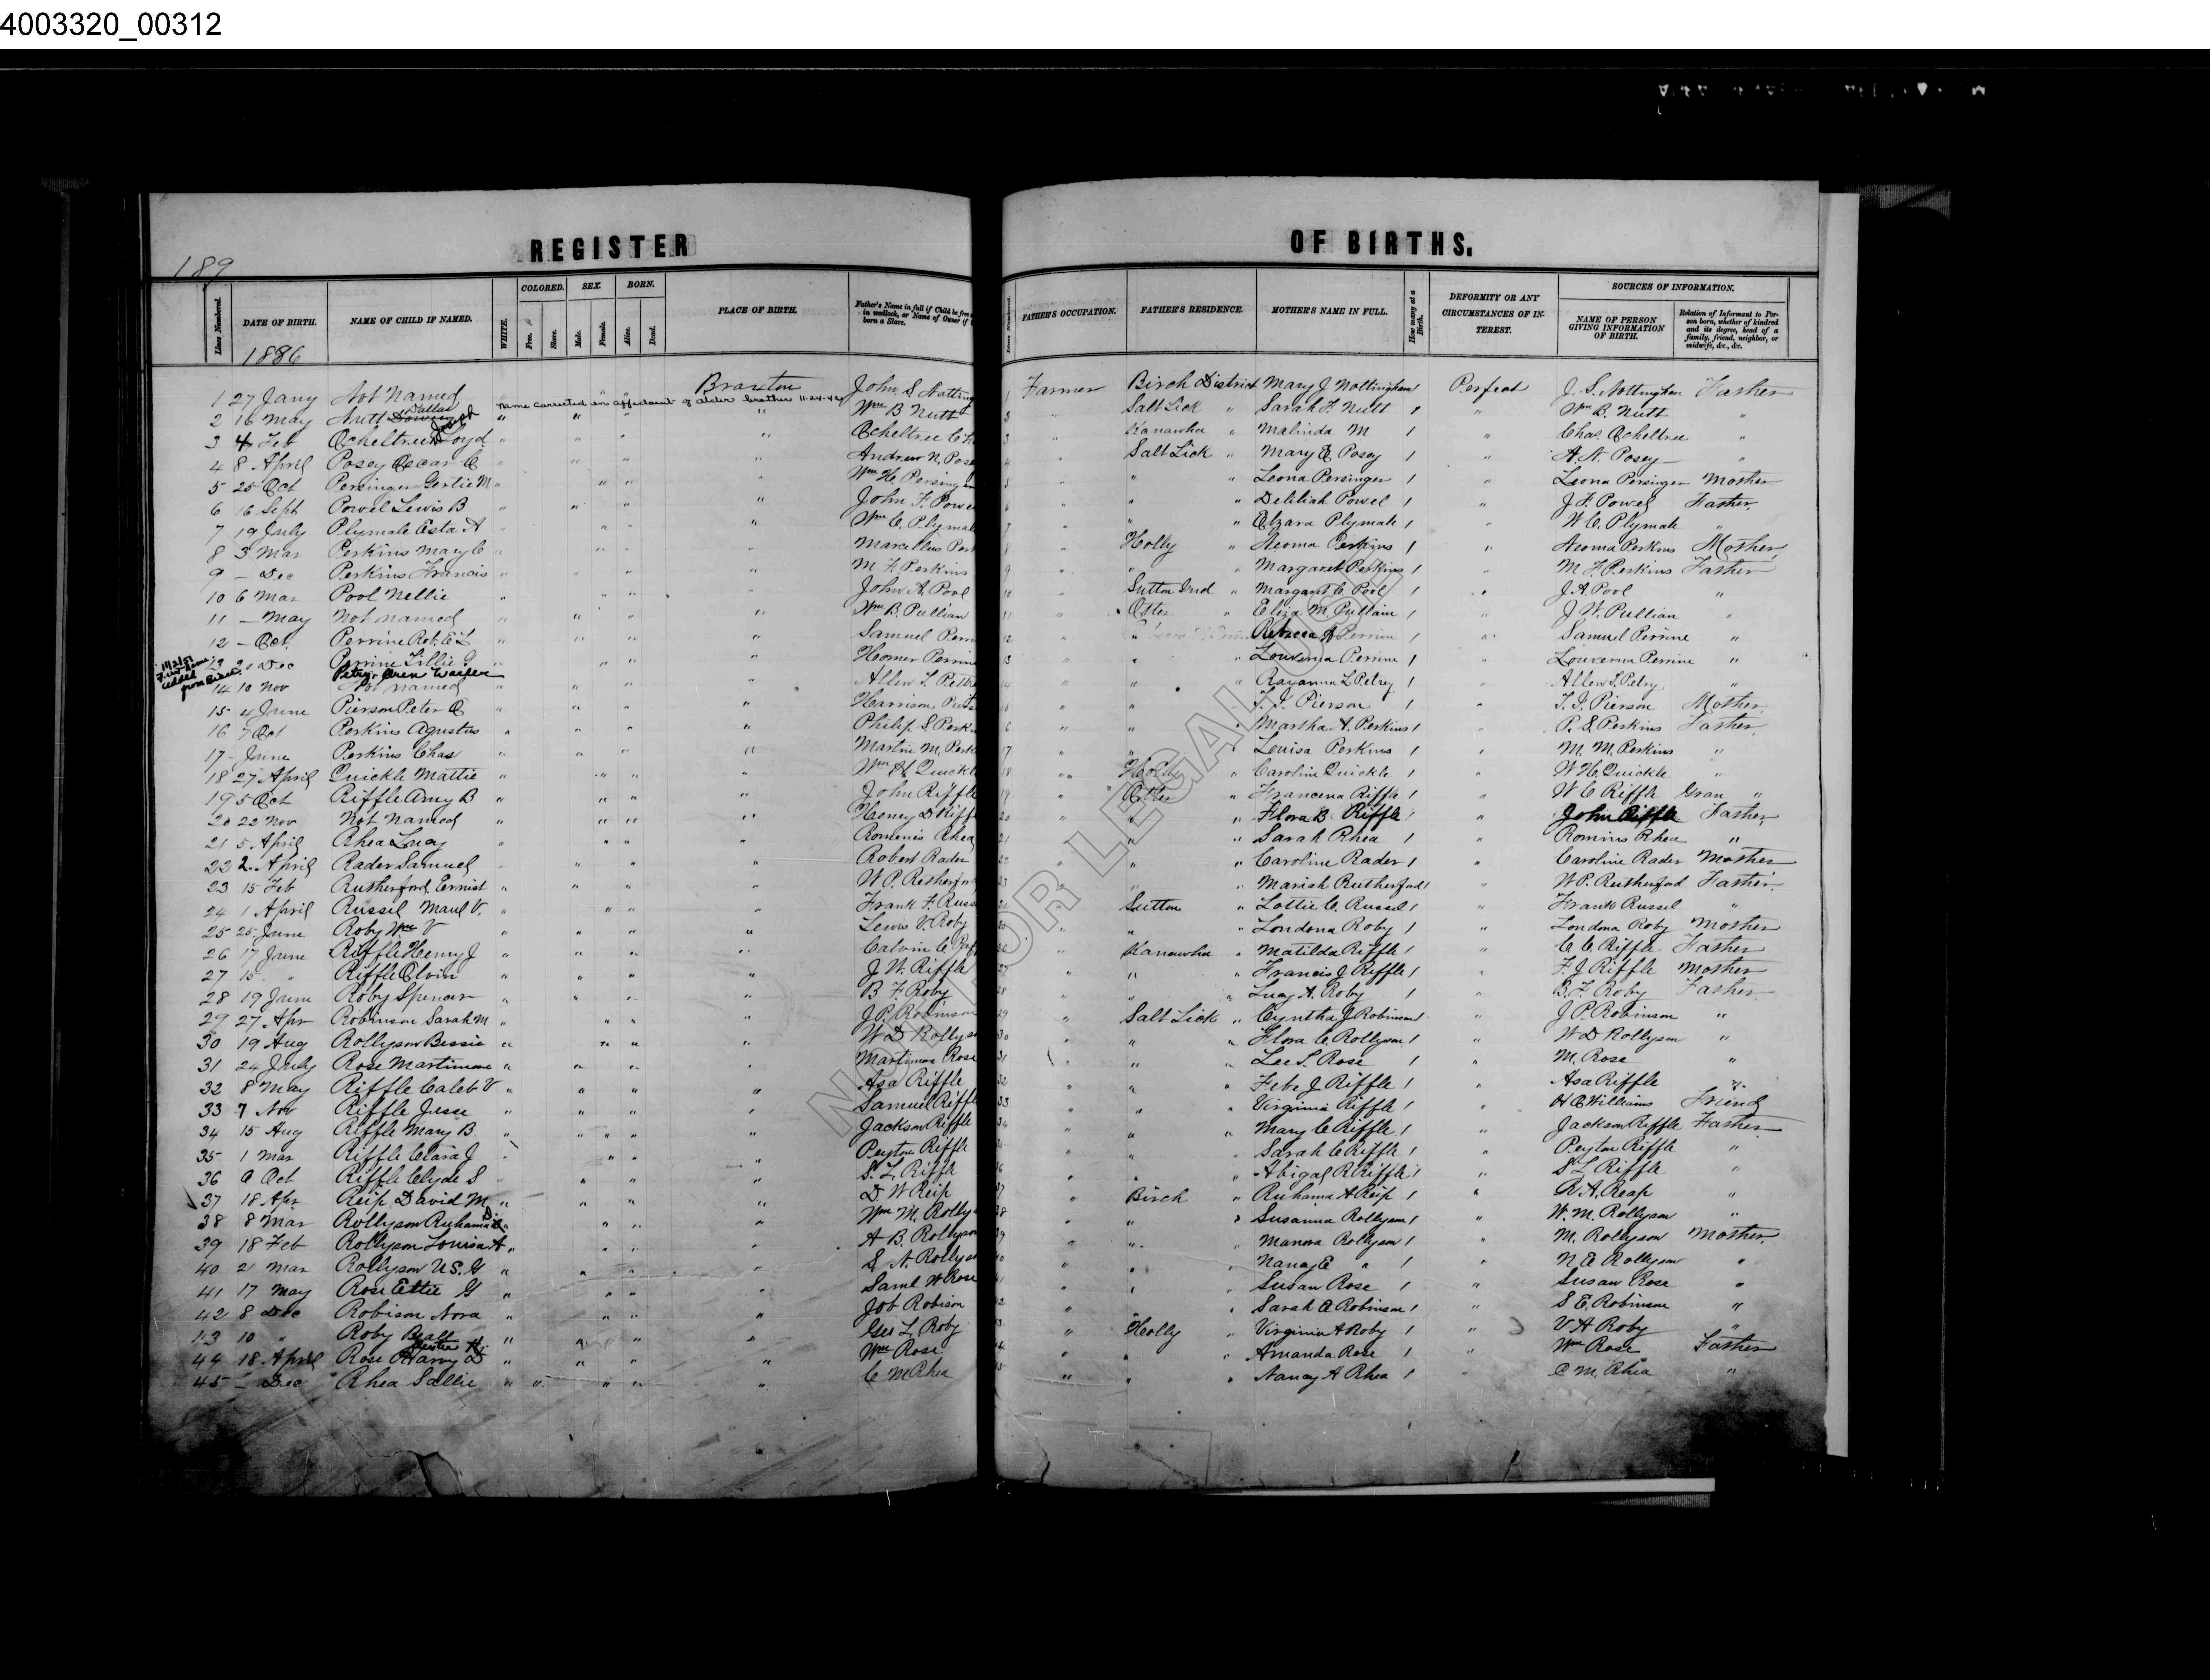 4003320_00312
189
REGISTER OF BIRTHS.
Lines Numbered. DATE OF BIRTH. NAME OF CHILD IF NAMED. WHITE. COLORED. Free. Slave. SEX. Male. Female. BORN. Alive. Dead. PLACE OF BIRTH. Father's Name in full if Child be free in wedlock, or Name of Owner if born a Slave.
Lines Numbered. FATHER'S OCCUPATION. FATHER'S RESIDENCE. MOTHER'S NAME IN FULL. How many at a Birth. DEFORMITY OR ANY CIRCUMSTANCES OF INTEREST. SOURCES OF INFORMATION. NAME OF PERSON GIVING INFORMATION OF BIRTH. Relation of Informant to Person born, whether of kindred and its degree, head of a family, friend, neighbor, or midwife, &c., &c.
1886
1 27 Jany Not Named " " " Braxton John S Notting 1 Farmer Birch District Mary J Nottingham 1 Perfect J. S. Nottingham Father
name corrected on affidavit of older brother 11-24-42
2 16 May Nutt Dallas " " " " Wm B Nutt " Salt Lick " Sarah F Nutt 1 " Wm B. Nutt "
3 4 Feb Ocheltree Loyd " " " " Ocheltree C " Kanawha " Malinda M 1 " Chas. Ocheltree "
4 8 April Posey Oscar C " " " " Andrew N. Pose " Salt Lick " Mary E Posey 1 " A. N. Posey "
5 25 Oct Persinger Gertie M " " " " Wm H. Persinger " " " Leona Persinger 1 " Leona Persinger Mother
6 16 Sept Powel Lewis B " " " " John F. Powe " " " Delilah Powel 1 " J. F. Powel Father
7 19 July Plymale Esta A " " " " Wm C. Plymal " " " Elzara Plymale 1 " W. C. Plymale "
8 3 Mar Perkins Mary C " " " " Marcellus Per " Holly " Neoma Perkins 1 " Neoma Perkins Mother
9 - Dec Perkins Francis " " " " M F. Perkins " " " Margaret Perkins 1 " M F Perkins Father
10 6 Mar Pool Nellie " " " " John A. Pool " Sutton Ind " Margaret C Pool 1 " J. A Pool "
11 - May Not named " " " " Wm B. Pullian " Otter " Eliza M Pullain 1 " J. W. Pullian "
12 - Oct. Perrine Robt. E L " " " " Samuel Perri " " Rebecca A Perrine 1 " Samuel Perrine "
13 20 Dec Perrine Lillie " " " " Homer Perrine " " " Louverna Perrine 1 " Louverna Perrine "
First Name added
Petry Oren Warder
14 10 Nov Not named " " " " Allen S. Petr " " " Rayanna L Petrey 1 " Allen S. Petry "
15 4 June Pierson Peter C " " " " Harrison " " " T. J. Pierson 1 " T. J. Pierson Mother
16 7 Oct Perkins Agustus " " " " Philip S Perk " " " Martha A. Perkins 1 " P. S. Perkins Father
17 - June Perkins Chas " " " " Martin M. Perk " " " Louisa Perkins 1 " M. M. Perkins "
18 27 April Quickle Mattie " " " " Wm H Quickl " Holly " Caroline Quickle 1 " W H. Quickle "
19 5 Oct Riffle Amy B " " " " John Riffle " Otter " Francena Riffle 1 " W C Riffle Gran "
20 22 Nov Not Named " " " " Henry D Riff " " " Flora B Riffle 1 " John Riffle Father
21 5 April Rhea Lucy " " " " Romenis Rhea " " " Sarah Rhea 1 " Rominis Rhea "
22 2 April Rader Samuel " " " " Robert Rader " " " Caroline Rader 1 " Caroline Rader Mother
23 15 Feb Rutherford Ernist " " " " W P. Rutherfor " " " Mariah Rutherford 1 " W P. Rutherford Father
24 1 April Russel Maul V. " " " " Frank F. Russ " Sutton " Lottie C. Russel 1 " Frank Russel "
25 25 June Roby Wm V " " " " Lewis V. Roby " " " Londona Roby 1 " Londona Roby Mother
26 17 June Riffle Henry J " " " " Calvin C Rif " Kanawha " Matilda Riffle 1 " C C. Riffle Father
27 15 " Riffle Olvin " " " " J. W. Riffle " " " Francis J Riffle 1 " F. J Riffle Mother
28 19 June Roby Spencer " " " " B F. Roby " " " Lucy A. Roby 1 " B. F. Roby Father
29 27 Apr Robinson Sarah M " " " " J. P. Robinson " Salt Lick " Cyntha J Robinson 1 " J P. Robinson "
30 19 Aug Rollyson Bessie " " " " W. D Rollyso " " " Flora C Rollyson 1 " W D Rollyson "
31 24 July Rose Martimore " " " " Martimore Rose " " " Lee S. Rose 1 " M. Rose "
32 8 May Riffle Caleb V " " " " Asa Riffle " " " Febe J Riffle 1 " Asa Riffle "
33 7 Nov Riffle Jesse " " " " Samuel Riffl " " " Virginia Riffle 1 " H C Williams Friend
34 15 Aug Riffle Mary B " " " " Jackson Riffle " " " Mary C Riffle 1 " Jackson Riffle Father
35 1 Mar Riffle Clara J " " " " Peyton Riffle " " " Sarah C Riffle 1 " Peyton Riffle "
36 9 Oct Riffle Clyde S " " " " S. L. Riffle " " " Abigal R Riffle 1 " S L Riffle "
37 18 Apr Reip David M. " " " " D. W Reip " Birch " Ruhama A Reip 1 " R. A. Reap "
38 8 Mar Rollyson Ruhama " " " " Wm M. Rolly " " " Susanna Rollyson 1 " W. M. Rollyson "
39 18 Feb Rollyson Louisa A " " " " A B. Rollyson " " " Manora Rollyson 1 " M. Rollyson Mother
40 2 Mar Rollyson U S. G " " " " S. N. Rollyso " " " Nancy E " 1 " N. E Rollyson "
41 17 May Rose Ettie G " " " " Saml W Rose " " " Susan Rose 1 " Susan Rose "
42 8 Dec Robison Nora " " " " Job Robison " " " Sarah E Robinson 1 " S E. Robinson "
43 10 " Roby " " " " Geo L. Roby " Holly " Virginia A Roby 1 " V A Roby "
44 18 April Rose Harry D " " " " Wm Rose " " " Amanda Rose 1 " Wm Rose Father
45 - Dec Rhea Sallie " " " " " C M Rhea " " " Nancy A Rhea 1 " C M. Rhea "
NOT FOR LEGAL USE